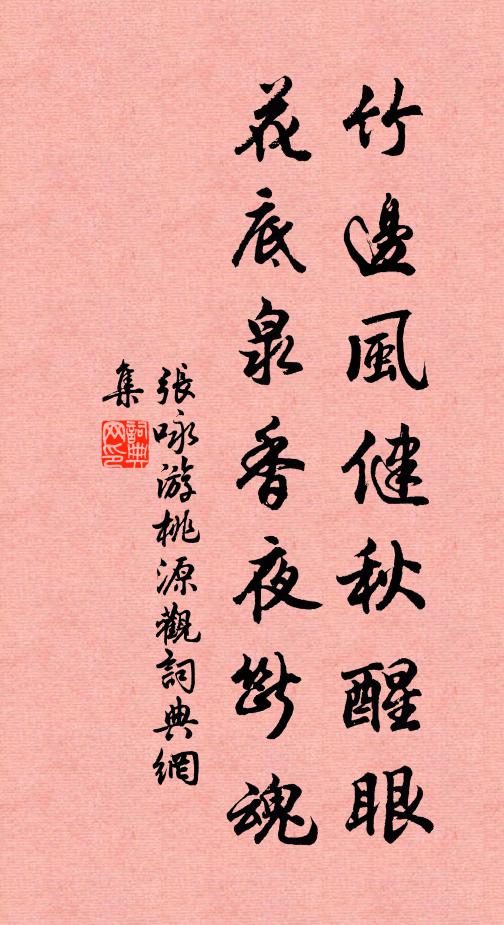 竹邊風健秋醒眼
花底泉香夜斷魂
張咏游桃源觀詞典網
集
詞典
网印